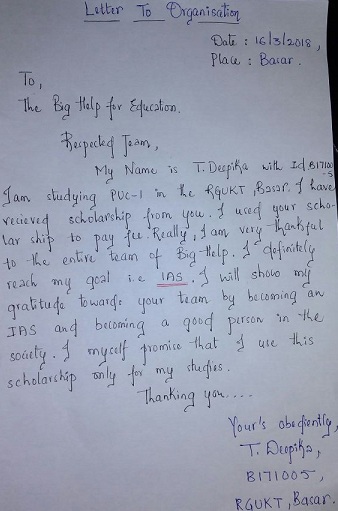 Letter To Organisation
Date : 16/3/2018,
Place : Basar.
To,
The Big Help for Education.
Respected Team,
My Name is T. Deepika with Id B17100
-5
I am studying PUC-1 in the RGUKT, Basar. I have
recieved scholarship from you. I used your scho-
lar ship to pay fee. Really, I am very thankful
to the entire team of Big-Help. I definitely
reach my goal i.e IAS. I will show my
gratitude towards your team by becoming an
IAS and becoming a good person in the
society. I myself promise that I use this
scholarship only for my studies.
Thanking you....
Your's obediently,
T. Deepika,
B171005,
RGUKT, Basar.